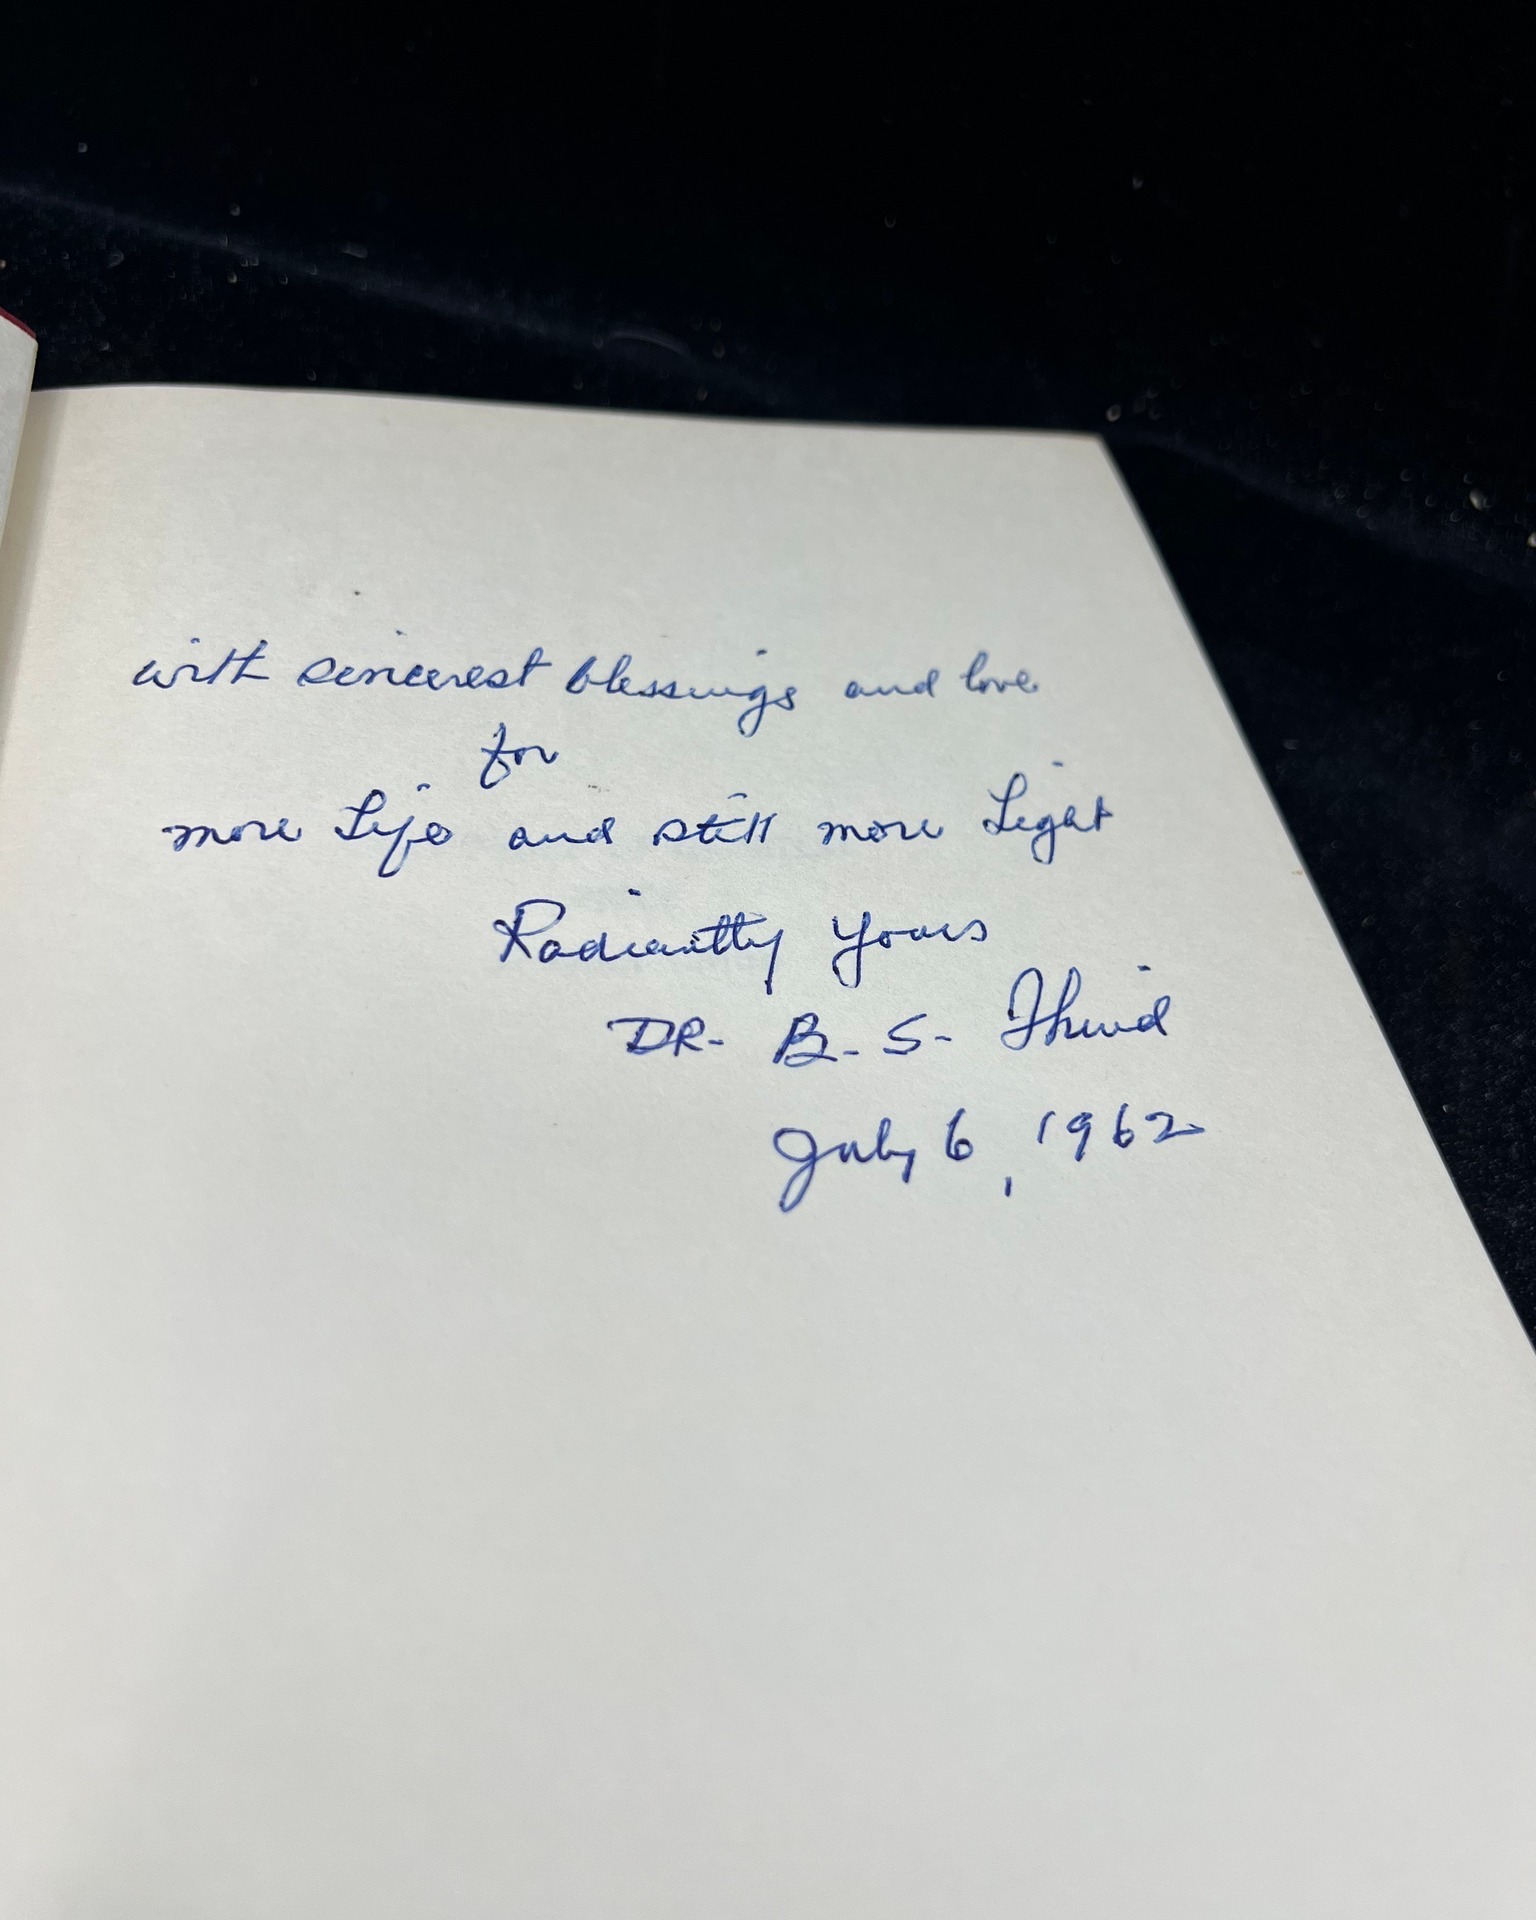 with sincerest blessings and love
for
more Life and still more Light
Radiantly yours
DR- B-S- Thind
July 6, 1962